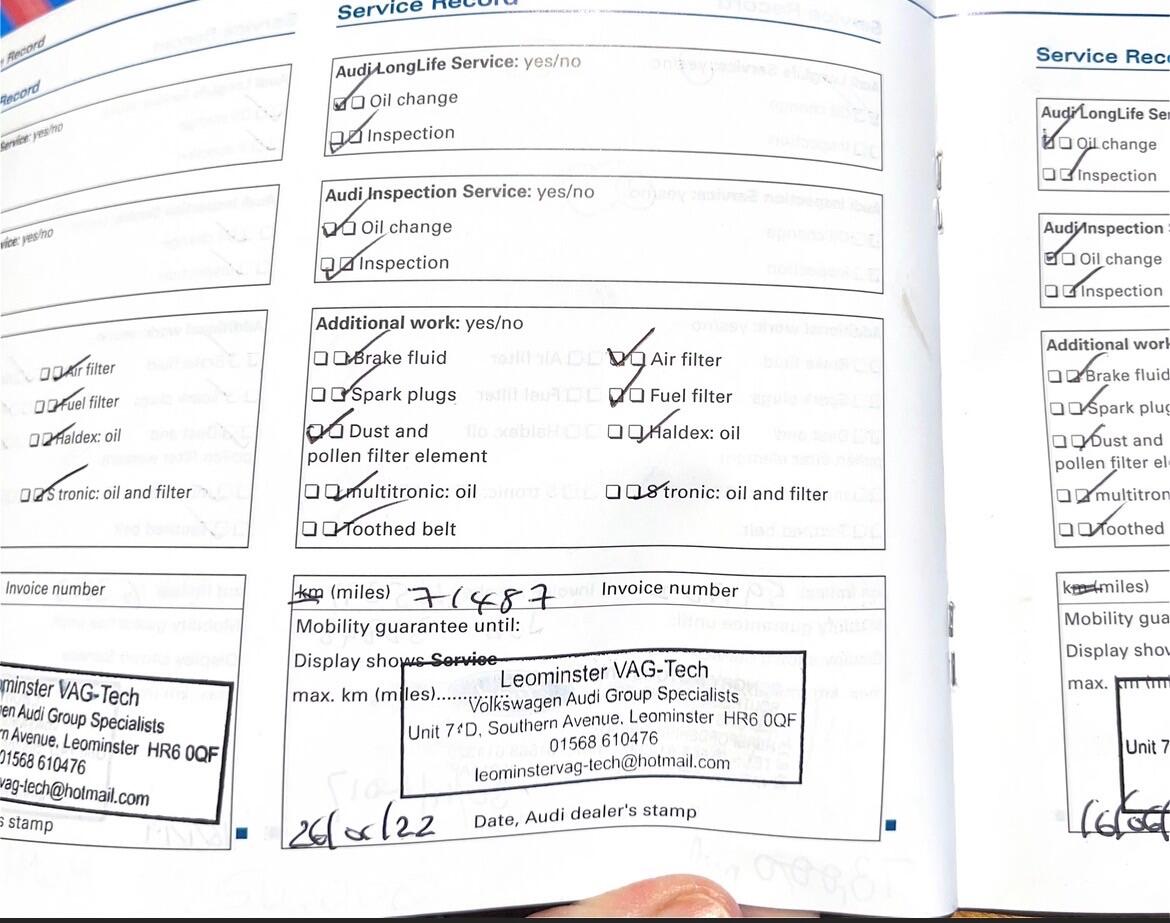 Record
Record
Service: yes/no
vice: yes/no
Air filter
Fuel filter
Haldex: oil
S tronic: oil and filter
Invoice number
minster VAG-Tech
en Audi Group Specialists
rn Avenue, Leominster HR6 0QF
01568 610476
vag-tech@hotmail.com
s stamp
Service Record
Audi LongLife Service: yes/no
Oil change
Inspection
Audi Inspection Service: yes/no
Oil change
Inspection
Additional work: yes/no
Brake fluid
Air filter
Spark plugs
Fuel filter
Dust and
Haldex: oil
pollen filter element
multitronic: oil
S tronic: oil and filter
Toothed belt
km (miles) 71487 Invoice number
Mobility guarantee until:
Display shows Service
max. km (miles)......
Leominster VAG-Tech
Volkswagen Audi Group Specialists
Unit 7'D, Southern Avenue, Leominster HR6 0QF
01568 610476
leominstervag-tech@hotmail.com
Date, Audi dealer's stamp
Service Reco
Audi LongLife Ser
Oil change
Inspection
Audi Inspection
Oil change
Inspection
Additional work
Brake fluid
Spark plug
Dust and
pollen filter el
multitron
Toothed
km (miles)
Mobility gua
Display show
max. km (m
Unit 7